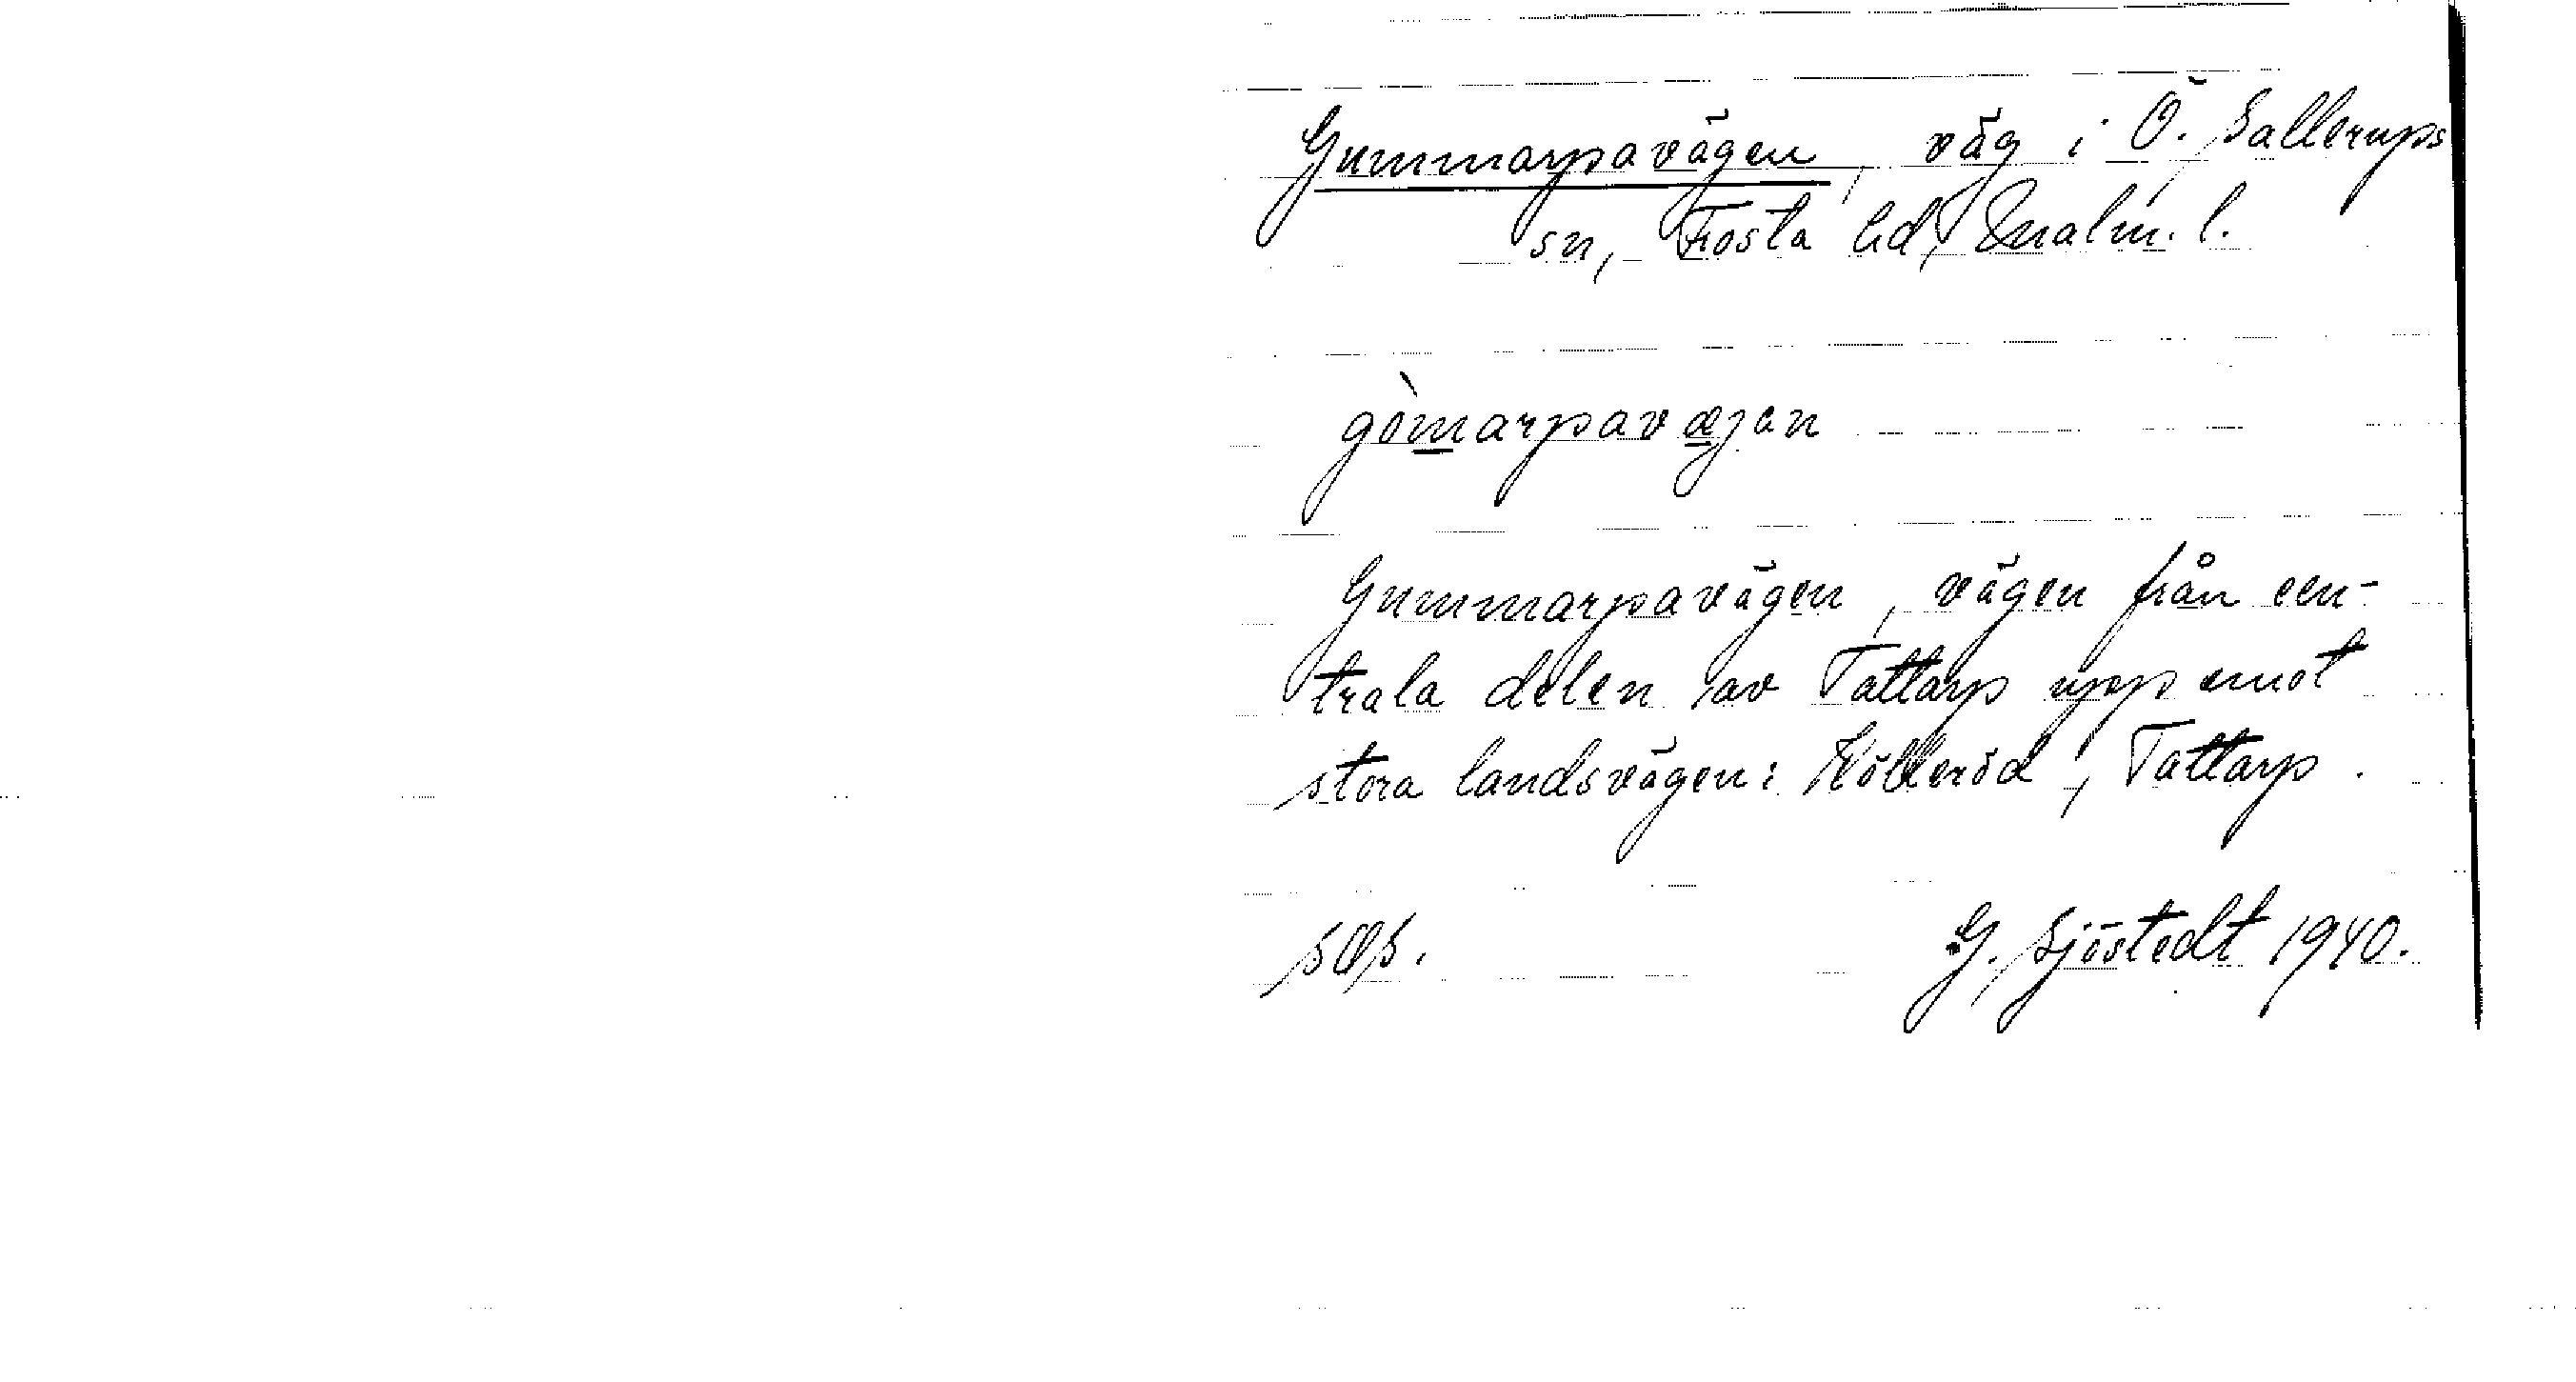 Gummarpavägen, väg i Ö. Sallerups
sn, Frosta hd, Malm. l.
gòmarpavæjan
Gummarpavägen, vägen från cen-
trala delen av Tattarp upp emot
stora landsvägen: Kölleröd, Tattarp.
G. Sjöstedt 1940.